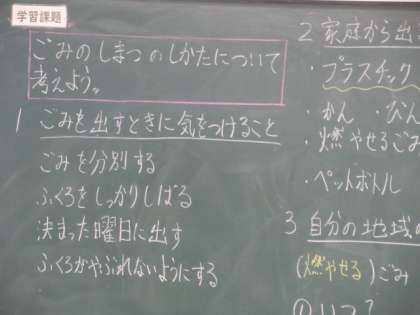 学習課題
ごみのしまつのしかたについて
考えよう。
1 ごみを出すときに気をつけること
ごみを分別する
ふくろをしっかりしばる
決まった曜日に出す
ふくろがやぶれないようにする
2 家庭から出
・プラスチック
・かん ・びん
・燃やせるごみ
・ペットボトル
3 自分の地域の
(燃やせる)ごみ
①いつ?